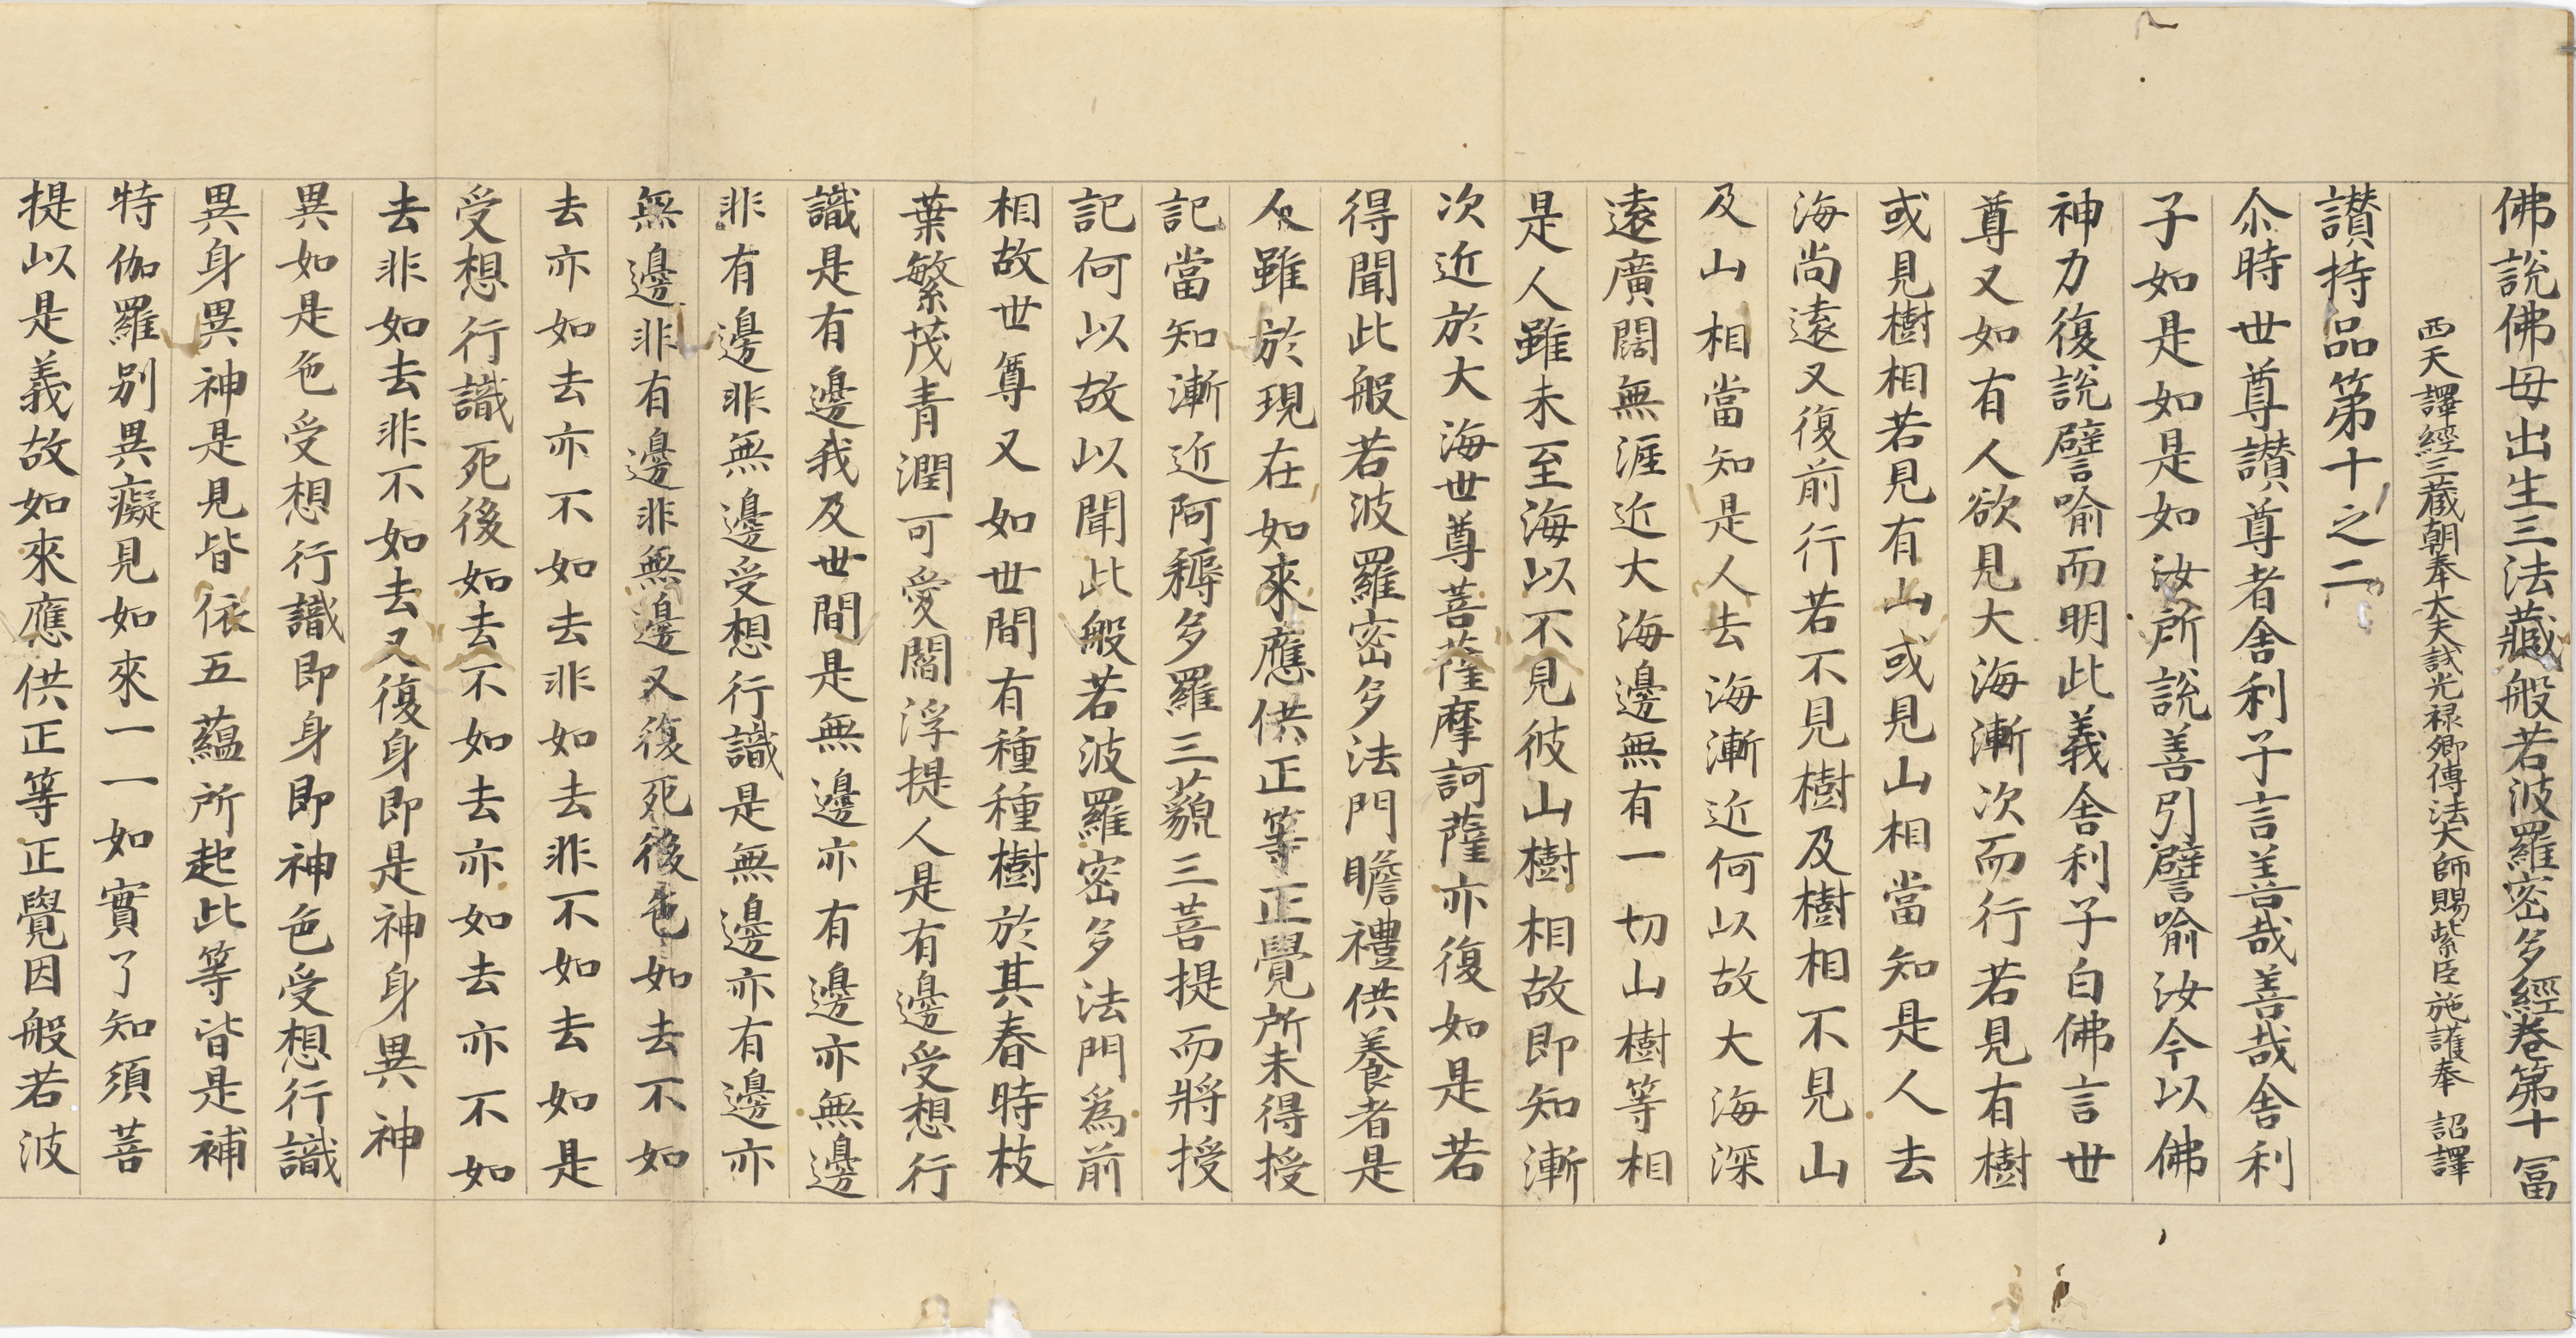 佛說佛母出生三法藏般若波羅密多經卷第十冨
西天譯經三藏朝奉大夫試光禄卿傳法大師賜紫臣施護奉 詔譯
讃持品第十之二
尒時世尊讃尊者舍利子言善哉善哉舍利
子如是如是如汝所說善引譬喻汝今以佛
神力復說譬喻而明此義舍利子白佛言世
尊又如有人欲見大海漸次而行若見有樹
或見樹相若見有山或見山相當知是人去
海尚遠又復前行若不見樹及樹相不見山
及山相當知是人去海漸近何以故大海深
遠廣闊無涯近大海邊無有一切山樹等相
是人雖未至海以不見彼山樹相故即知漸
次近於大海世尊菩薩摩訶薩亦復如是若
得聞此般若波羅密多法門瞻禮供養者是
人雖於現在如來應供正等正覺所未得授
記當知漸近阿耨多羅三藐三菩提而將授
記何以故以聞此般若波羅密多法門爲前
相故世尊又如世間有種種樹於其春時枝
葉繁茂青潤可愛閻浮提人是有邊受想行
識是有邊我及世間是無邊亦有邊亦無邊
非有邊非無邊受想行識是無邊亦有邊亦
無邊非有邊非無邊又復死後色如去不如
去亦如去亦不如去非如去非不如去如是
受想行識死後如去不如去亦如去亦不如
去非如去非不如去又復身即是神身異神
異如是色受想行識即身即神色受想行識
異身異神是見皆依五蘊所起此等皆是補
特伽羅別異癡見如來一一如實了知須菩
提以是義故如來應供正等正覺因般若波